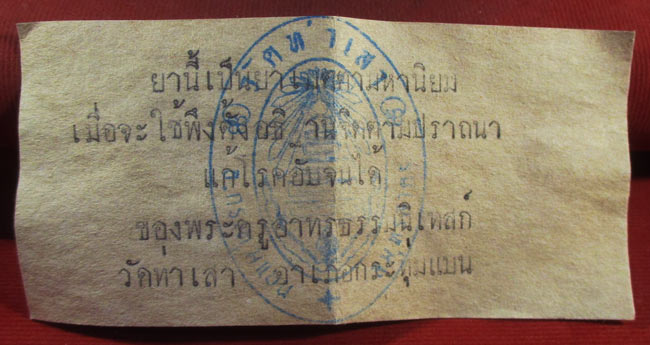 ยานี้เป็นยาเมตตามหานิยม
เมื่อจะใช้พึงตั้งอธิ านจิตตามปราถนา
แก้โรคอับจนได้
ของพระครูอาทรธรรมนิเทสก์
วัดท่าเสา อำเภอกระทุ่มแบน
วัดท่าเสา